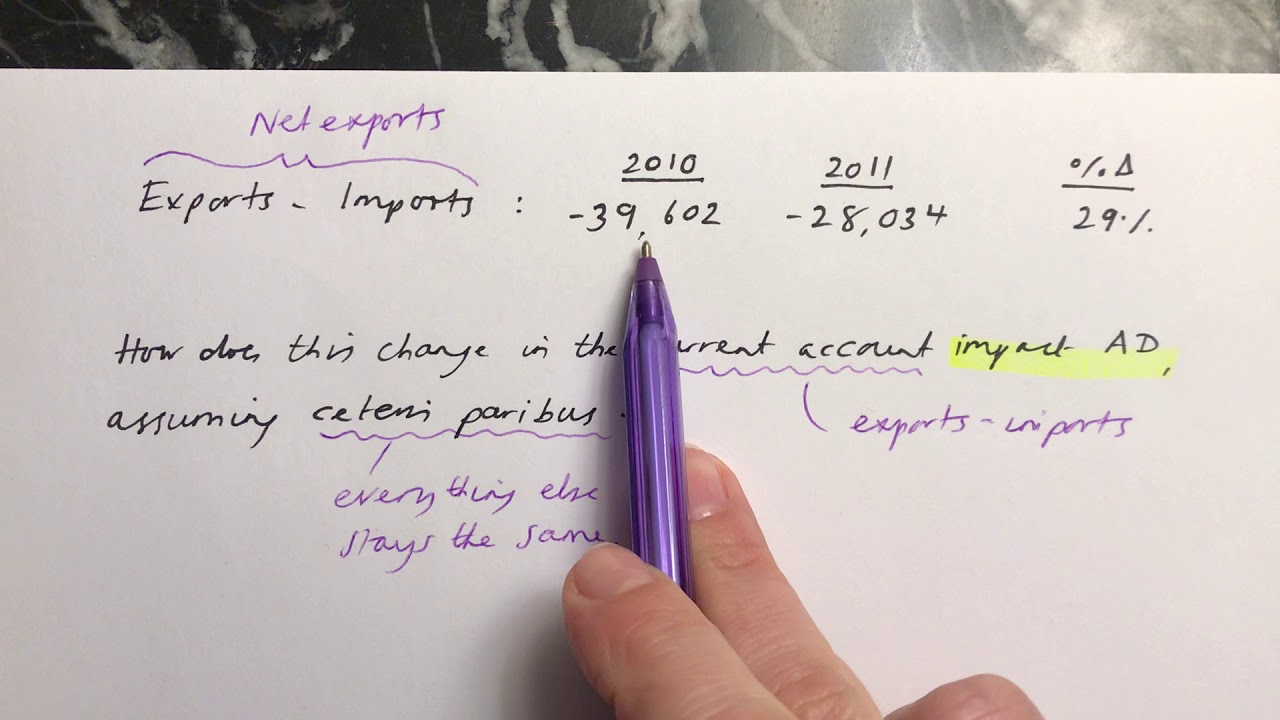 Net exports
2010 2011 % Δ
Exports - Imports : -39,602 -28,034 29%
How does this change in the current account impact AD,
assuming ceteris paribus.
exports - imports
everything else
stays the same.